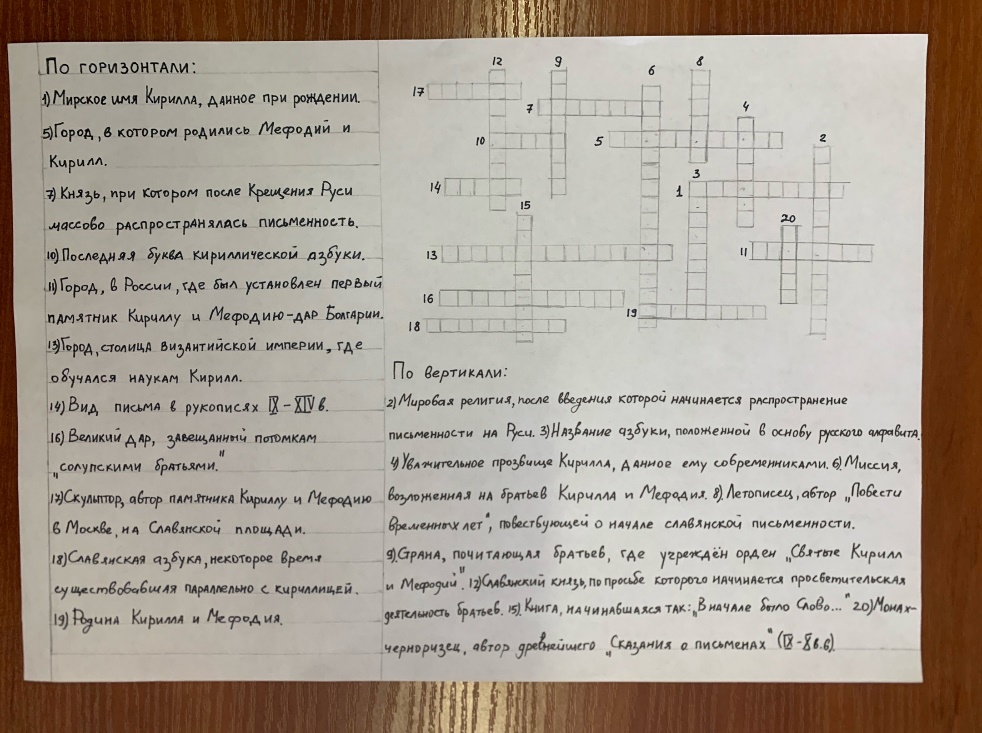 По горизонтали:
1) Мирское имя Кирилла, данное при рождении.
5) Город, в котором родились Мефодий и
Кирилл.
7) Князь, при котором после Крещения Руси
массово распространялась письменность.
10) Последняя буква кириллической азбуки.
11) Город, в России, где был установлен первый
памятник Кириллу и Мефодию-дар Болгарии.
13) Город, столица Византийской империи, где
обучался наукам Кирилл.
14) Вид письма в рукописях IX-XIV в.
16) Великий дар, завещанный потомкам
„солунскими братьями."
17) Скульптор, автор памятника Кириллу и Мефодию
в Москве, на Славянской площади.
18) Славянская азбука, некоторое время
существовавшая параллельно с кириллицей.
19) Родина Кирилла и Мефодия.
12 9 6 8
17
7
4
10 5 2
14 3
1
15 20
13 11
16
19
18
По вертикали:
2) Мировая религия, после введения которой начинается распространение
письменности на Руси. 3) Название азбуки, положенной в основу русского алфавита.
4) Уважительное прозвище Кирилла, данное ему современниками. 6) Миссия,
возложенная на братьев Кирилла и Мефодия. 8). Летописец, автор „Повести
временных лет", повествующей о начале славянской письменности.
9) Страна, почитающая братьев, где учреждён орден „Святые Кирилл
и Мефодий". 12) Славянский князь, по просьбе которого начинается просветительская
деятельность братьев. 15). Книга, начинавшаяся так: „В начале было Слово..." 20) Монах-
черноризец, автор древнейшего „Сказания о письменах" (IX-X в.в).